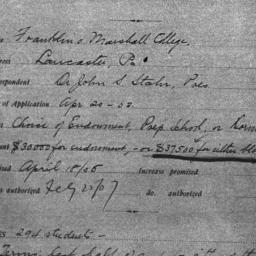 Franklin & Marshall College,
Lancaster, Pa.
pondent Dr John S. Stahr, Pres
of Application Apr 20-05.
Choice of Endowment, Prep School, or Dorm
nt $30000 for endowment, - or $37500 for either
ised April 18/05 Increase promised
authorized Feb 20/07 do. authorized
294 students -
Terms